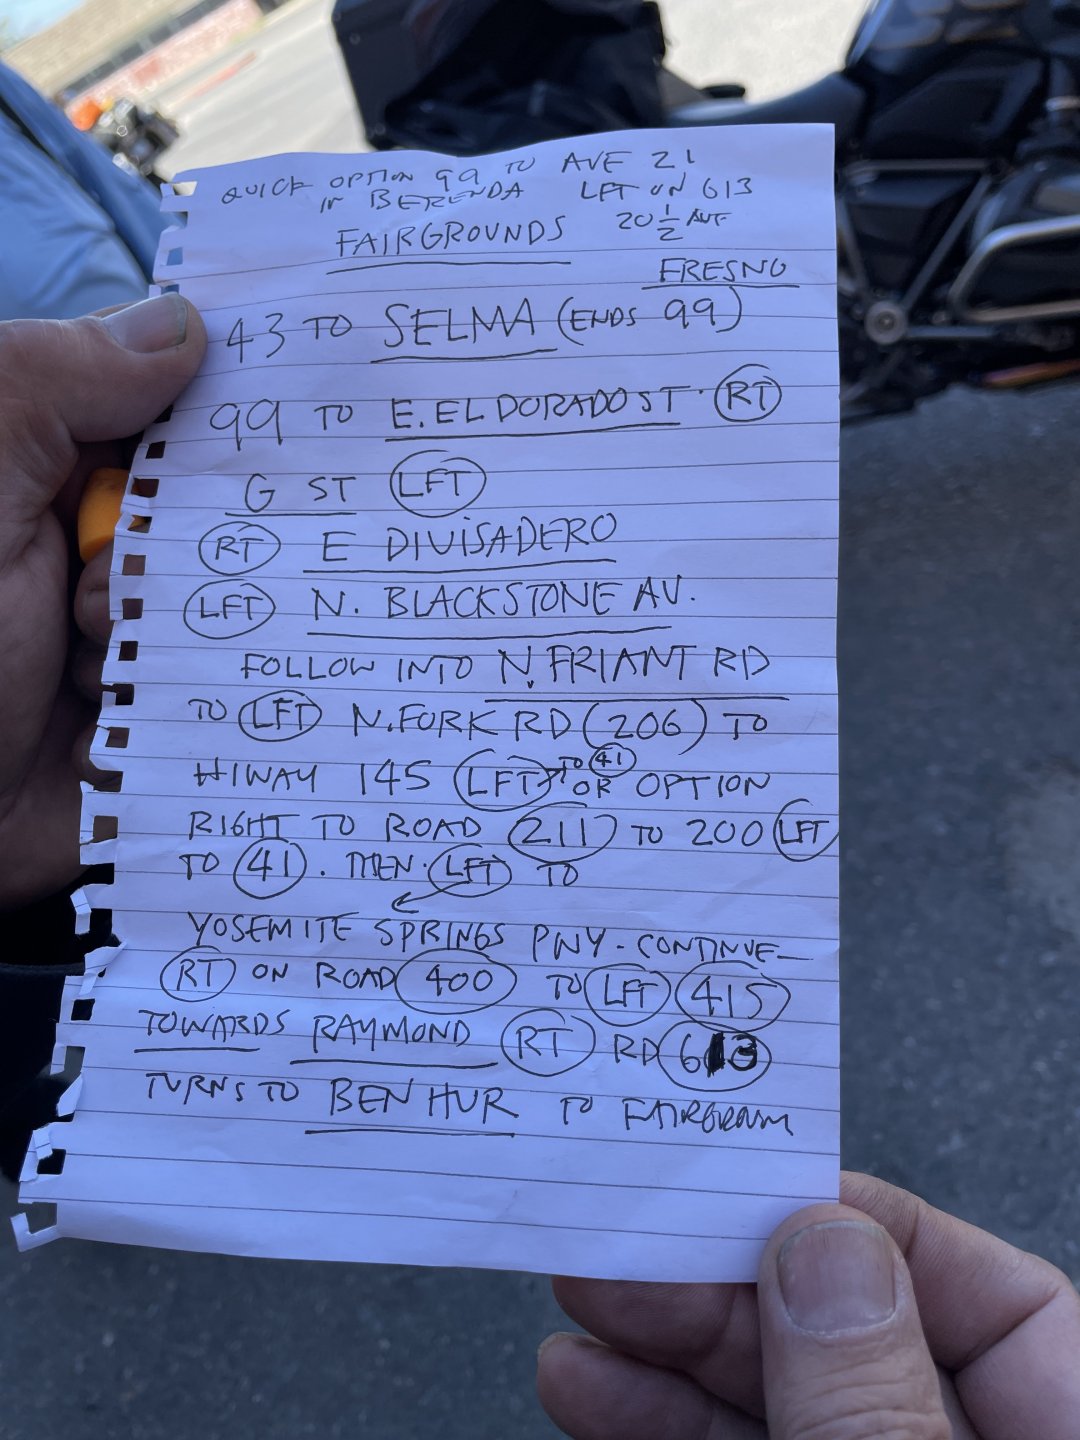 QUICK OPTION 99 TO AVE 21
IN BERENDA LFT ON 613
FAIRGROUNDS 20 1/2 AVE
FRESNO
43 TO SELMA (ENDS 99)
99 TO E. EL DORADO ST. RT
G ST LFT
RT E DIVISADERO
LFT N. BLACKSTONE AV.
FOLLOW INTO N. FRIANT RD
TO LFT N. FORK RD (206) TO
HIWAY 145 LFT → TO 41 OR OPTION
RIGHT TO ROAD 211 TO 200 LFT
TO 41. THEN. LFT TO
YOSEMITE SPRINGS PWY - CONTINUE
RT ON ROAD 400 TO LFT 415
TOWARDS RAYMOND RT RD 613
TURNS TO BEN HUR TO